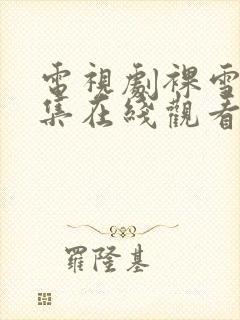 電視劇裸雪
集在綫觀看
羅隆基